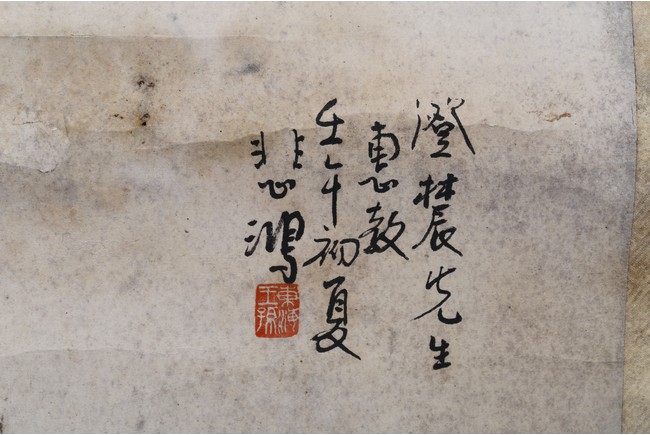 澄辳先生
惠教
壬午初夏
悲鴻
東海王孫